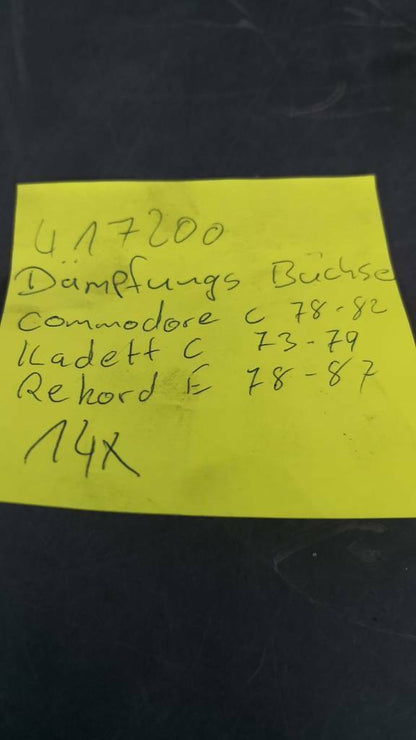 417200
Dämpfungs Büchse
Commodore C 78-82
Kadett C 73-79
Rekord E 78-87
14x